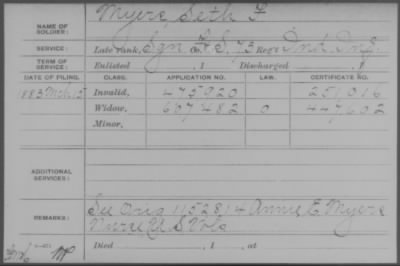 NAME OF SOLDIER: Myers Seth F
SERVICE: Late rank, Sgn F&S, 73 Reg't Ind. Inf.
TERM OF SERVICE: Enlisted , 1 Discharged , 1
DATE OF FILING. CLASS. APPLICATION NO. LAW. CERTIFICATE NO.
1883 Mch 15 Invalid, 475920 251016
Widow, 607482 0 447602
Minor,
ADDITIONAL SERVICES:
REMARKS: See Orig 1152814 Annie E. Myers
Nurse U S Vols
Died , 1 , at